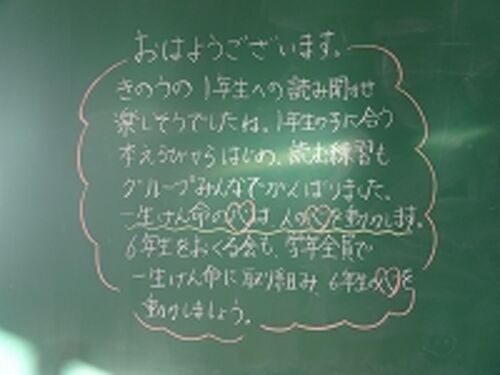 おはようございます。
きのうの 1年生への 読み聞かせ
楽しそうでしたね。1年生の子に合う
本えらびからはじめ、読む練習も
グループみんなでがんばりました。
一生けん命の心は 人の心を動かします。
6年生をおくる会も、学年全員で
一生けん命に取り組み、6年生の心を
動かしましょう。